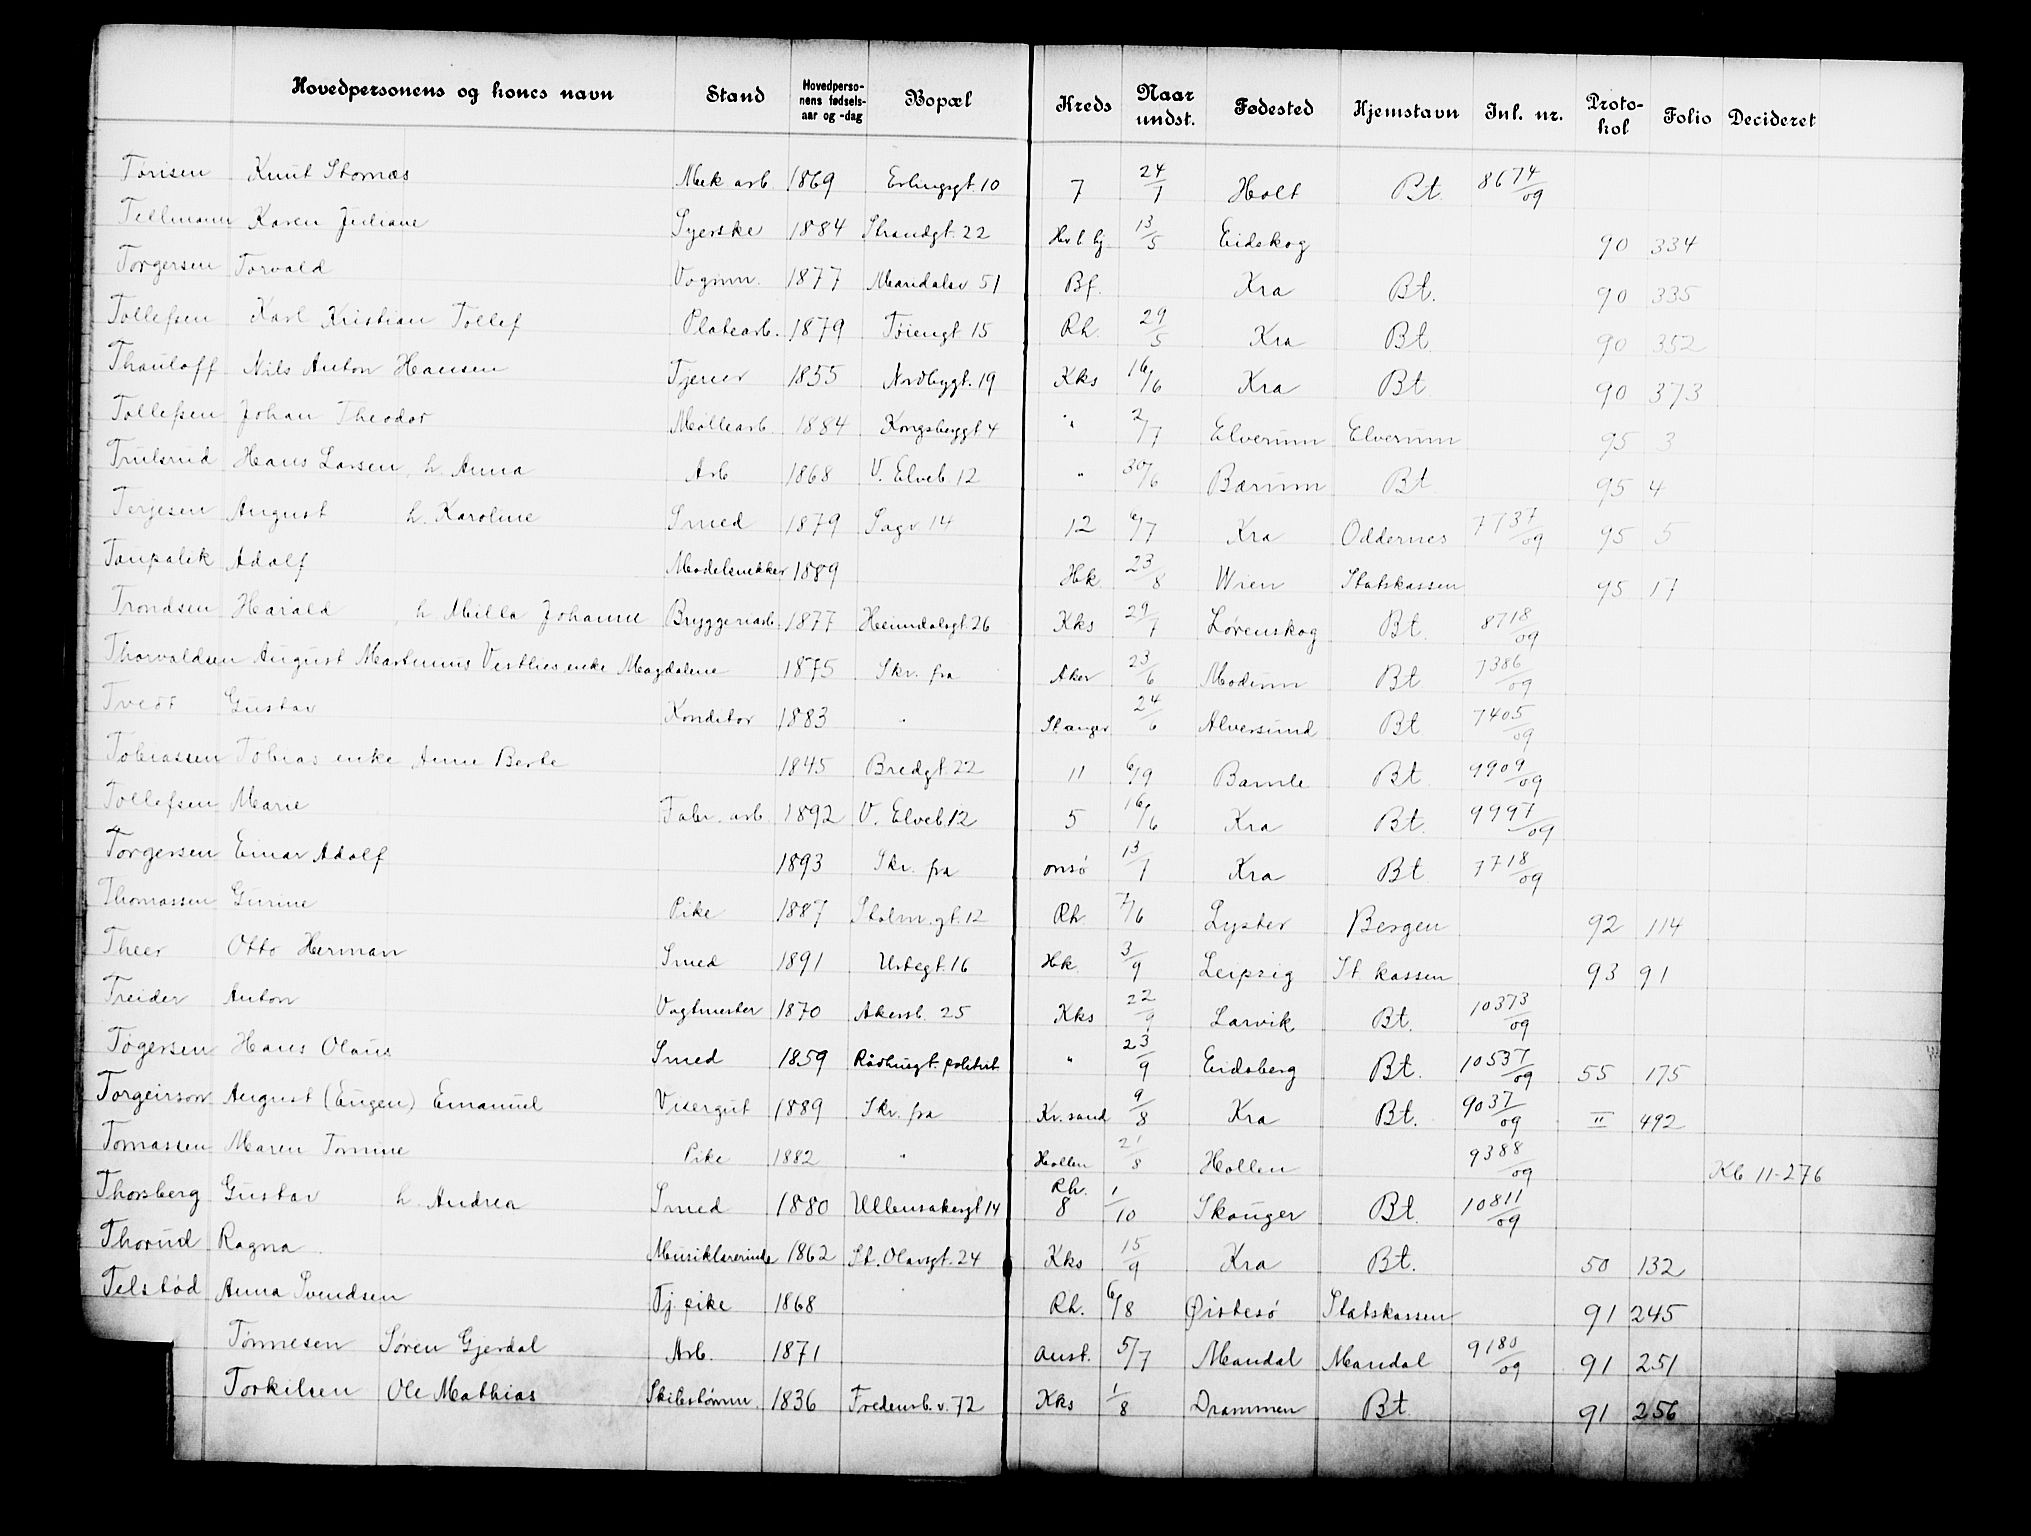 Hovedpersonens og kones navn Stand Hovedperso-nens fødsels-aar og -dag Bopæl Kreds Naar undst. Fødested Hjemstavn Inl. nr. Proto-kol Folio Decideret
Tørisen Knut Thomas Mek arb. 1869 Erlingsgt. 10 7 24/7 Holt Bt. 8674/09
Tellmann Karen Juliane Syerske 1884 Strandgt. 22 13/5 Eidskog 90 334
Torgersen Torvald Vognm. 1877 Maridalsv 51 Bf. Kra Bt. 90 335
Tollefsen Karl Kristian Tollef Platearb. 1879 Tøiengt 15 Rh. 29/5 Kra Bt. 90 352
Thauloff Nils Anton Hansen Tjener 1855 Nordbygt. 19 Kks 16/6 Kra Bt 90 373
Tollefsen Johan Theodor Møllearb. 1884 Kongsberggt 4 " 2/7 Elverum Elverum 95 3
Trulsrud Hans Larsen, h. Anna Arb 1868 V. Elveb 12 " 30/6 Bærum Bt 95 4
Terjesen August h. Karoline Smed 1879 Sagv 14 12 6/7 Kra Oddernes 7737/09 95 5
Taupalik Adolf Modelsnekker 1889 Hk. 23/8 Wien Statskassen 95 17
Trondsen Harald, h. Milla Johanne Bryggeriarb. 1877 Heimdalsgt. 26 Kks 29/7 Lørenskog Bt. 8718/09
Thorvaldsen August Martinius Vestlies enke Magdalene 1875 Skr. fra Aker 23/6 Modum Bt 7386/09
Tvedt Gustav Konditor 1883 " Stavanger 24/6 Alversund Bt 7405/09
Tobiassen Tobias enke Anne Berte 1845 Bredgt. 22 11 6/9 Bamle Bt. 9909/09
Tollefsen Marie Fabr. arb. 1892 V. Elveb 12 5 16/6 Kra Bt. 9997/09
Torgersen Einar Adolf 1893 Skr. fra onsø 13/7 Kra Bt. 7718/09
Thomassen Gurine Pike 1887 Stolm.gt. 12 Rh. 7/6 Lyster Bergen 92 114
Theer Otto Herman Smed 1891 Urtegt. 16 Hk. 3/9 Leipzig St. kassen 93 91
Treider Anton Vagtmester 1870 Akersb. 25 Kks 22/9 Larvik Bt. 10373/09
Togersen Hans Olaus Smed 1859 Rådhusgt. politist. " 23/9 Eidsberg Bt. 10537/09 55 175
Torgeirson August (Eugen) Emanuel Visergut 1889 Skr. fra Kr.sand 9/8 Kra Bt. 9037/09 II 492
Tomassen Maren Tomine Pike 1882 " Hollen 21/8 Hollen 9388/09 Kb 11-276
Thorsberg Gustav h. Andrea Smed 1880 Ullensakergt 14 Rh. 8 1/10 Skouger Bt. 10811/09
Thorud Ragna Musiklærerinde 1862 St. Olavsgt. 24 Kks 15/9 Kra Bt. 50 132
Telstød Anna Svendsen Tj. pike 1868 Rh. 6/8 Øistesø Statskassen 91 245
Tønnesen Søren Gjerdal Arb. 1871 aust. 5/7 Mandal Mandal 9180/09 91 251
Torkilsen Ole Mathias Skibstømm. 1836 Fredensb. v. 72 Kks 1/8 Drammen Bt. 91 256